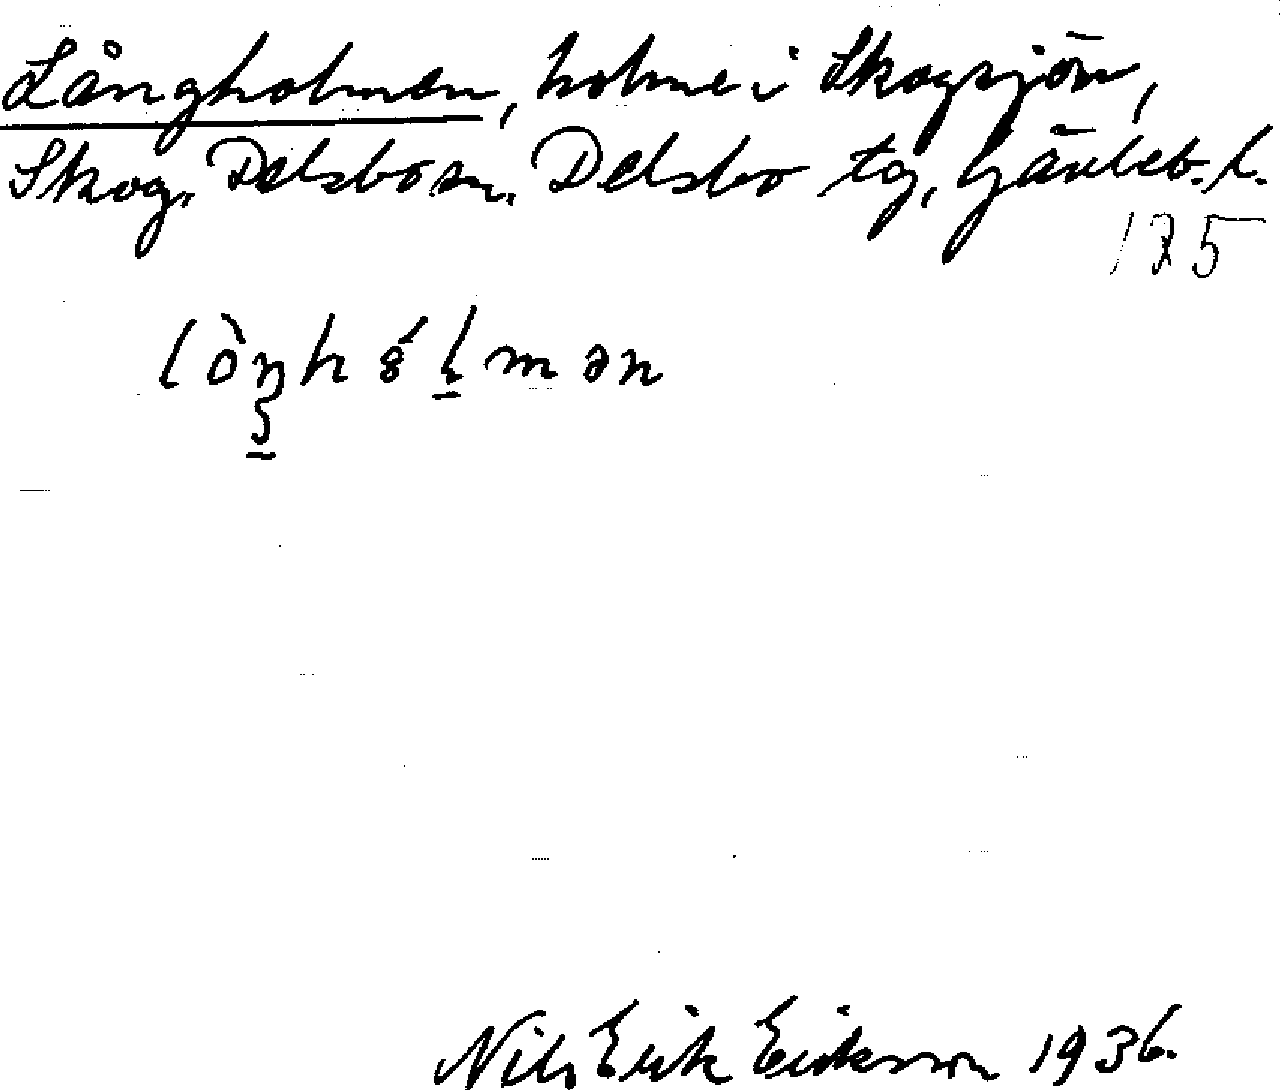 Långholmen, holme i Skogsjön,
Skog, Delsbo sn. Delsbo tg, Gävleb. l.
175
lòŋhólmən
Nils Erik Eriksson 1936.